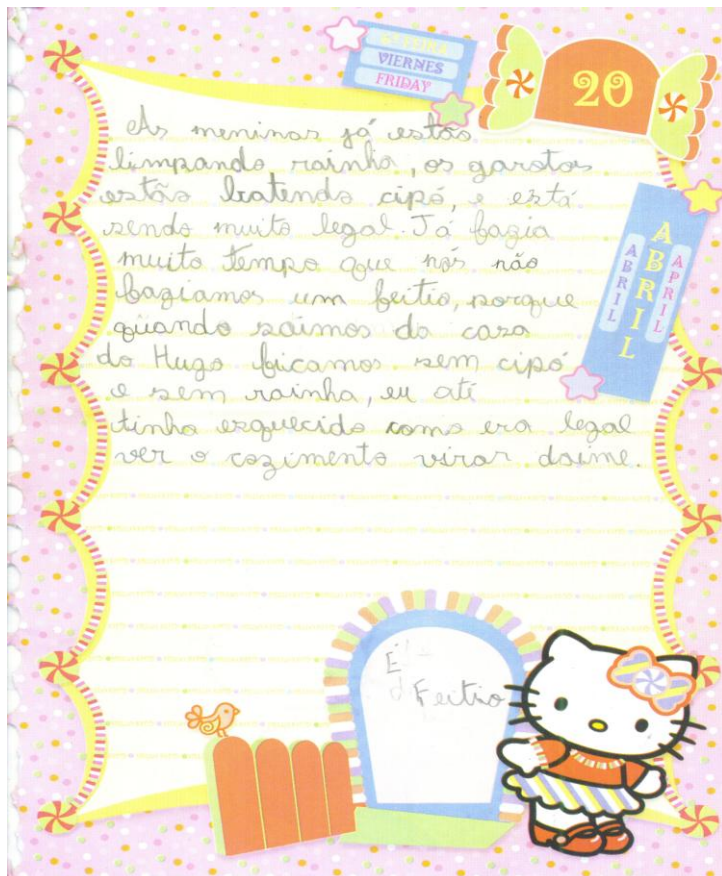 6ª FEIRA
VIERNES
FRIDAY
20
ABRIL
ABRIL
APRIL
As meninas já estão
limpando rainha, os garotos
estão batendo cipó, e está
sendo muito legal. Já fazia
muito tempo que nós não
faziamos um feitio, porque
quando saimos da casa
do Hugo ficamos sem cipó
e sem rainha, eu até
tinha esquecido como era legal
ver o cozimento virar daime.
É
Feitio